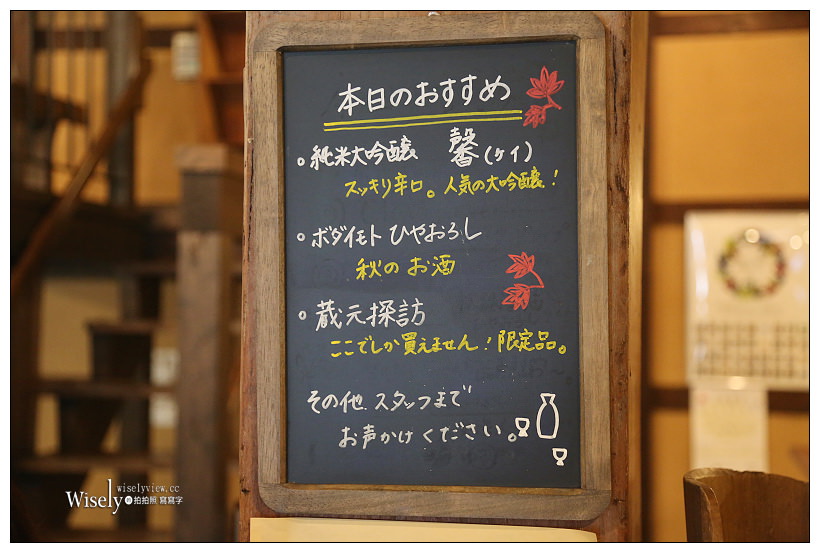 本日のおすすめ
。純米大吟醸 馨(ケイ)
スッキリ辛口。人気の大吟醸!
。ボダイモト ひやおろし
秋の お酒
。蔵元探訪
ここでしか買えません!限定品。
その他、スタッフまで
お声かけください。
wiselyview.cc
Wisely的拍拍照 寫寫字